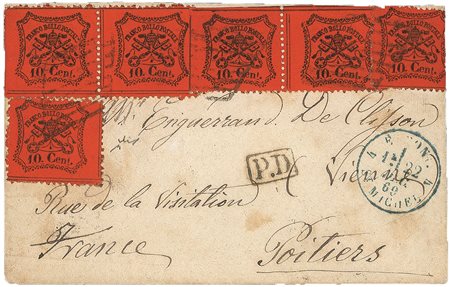 FRANCO BOLLO POSTALE FRANCO BOLLO POSTALE FRANCO BOLLO POSTALE FRANCO BOLLO POSTALE FRANCO BOLLO POSTALE
10 Cent. 10 Cent. 10 Cent. 10 Cent. 10 Cent.
FRANCO BOLLO POSTALE
10 Cent.
Mr Enguerrand De Clisson
P.D.
Vienne
22
69
MICHEL
Rue de la Visitation
France
Poitiers